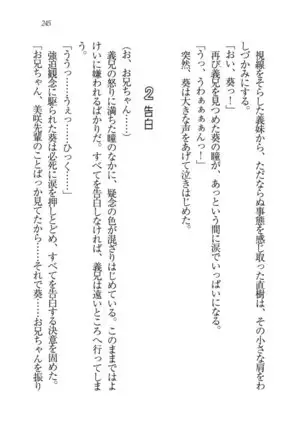 245
視線をそらした義妹から、ただならぬ事態を感じ取った直樹は、その小さな肩をわ
しづかみにする。
「おい、葵っ！」
再び義兄を見つめた葵の瞳が、あっという間に涙でいっぱいになる。
「うっ、うわぁぁぁぁんっ！」
突然、葵は大きな声をあげて泣きはじめた。
② 告白
（お、お兄ちゃん……）
義兄の怒りに満ちた瞳のなかに、疑念の色が混ざりはじめている。このままではよ
けいに嫌われるばかりだ。すべてを告白しなければ、義兄は遠いところへ行ってしま
う。
「ううっ……うぇっ……ひっく……」
強迫観念に駆られた葵は必死に涙を押しとどめ、すべてを告白する決意を固めた。
「お兄ちゃん、美咲先輩のことばっか見てたから……それで葵……お兄ちゃんを振り